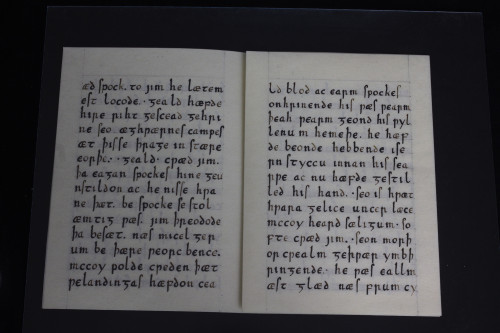 æd spock. to jim he lætem
est locode. · geald hæfde
hire riht gescead gehri
ne seo æghƿærnes campes
æt þisse þrage in
· geald · cƿæd jim.
ha eagan spockes hine geu
nstildon ac he nisse hƿa
ne þæt. be spocke se stol
æmtig ƿæs. jim þreodode
þa besæt. næs micel ger
um be þære ƿeorc bence.
mccoy ƿolde cƿeden þæt
ƿelandingas hæfdon cea
ld blod ac earm spockes
onhrinende his ƿæs ƿearm
þeah ƿearm geond his ƿyl
lenum hemeþe. he hæf
de beonde hebbende ise
rn styccu innan his sea
rƿe ac nu hæfde gestil
led his hand. · seo is hƿæt
hƿara gelice uncer læce
mccoy heard sæligum. · so
fte cƿæd jim. · seon morþ
or cƿealm gehƿær ymbh
ringende. · he ƿæs eallm
æst glæd næs frum cy